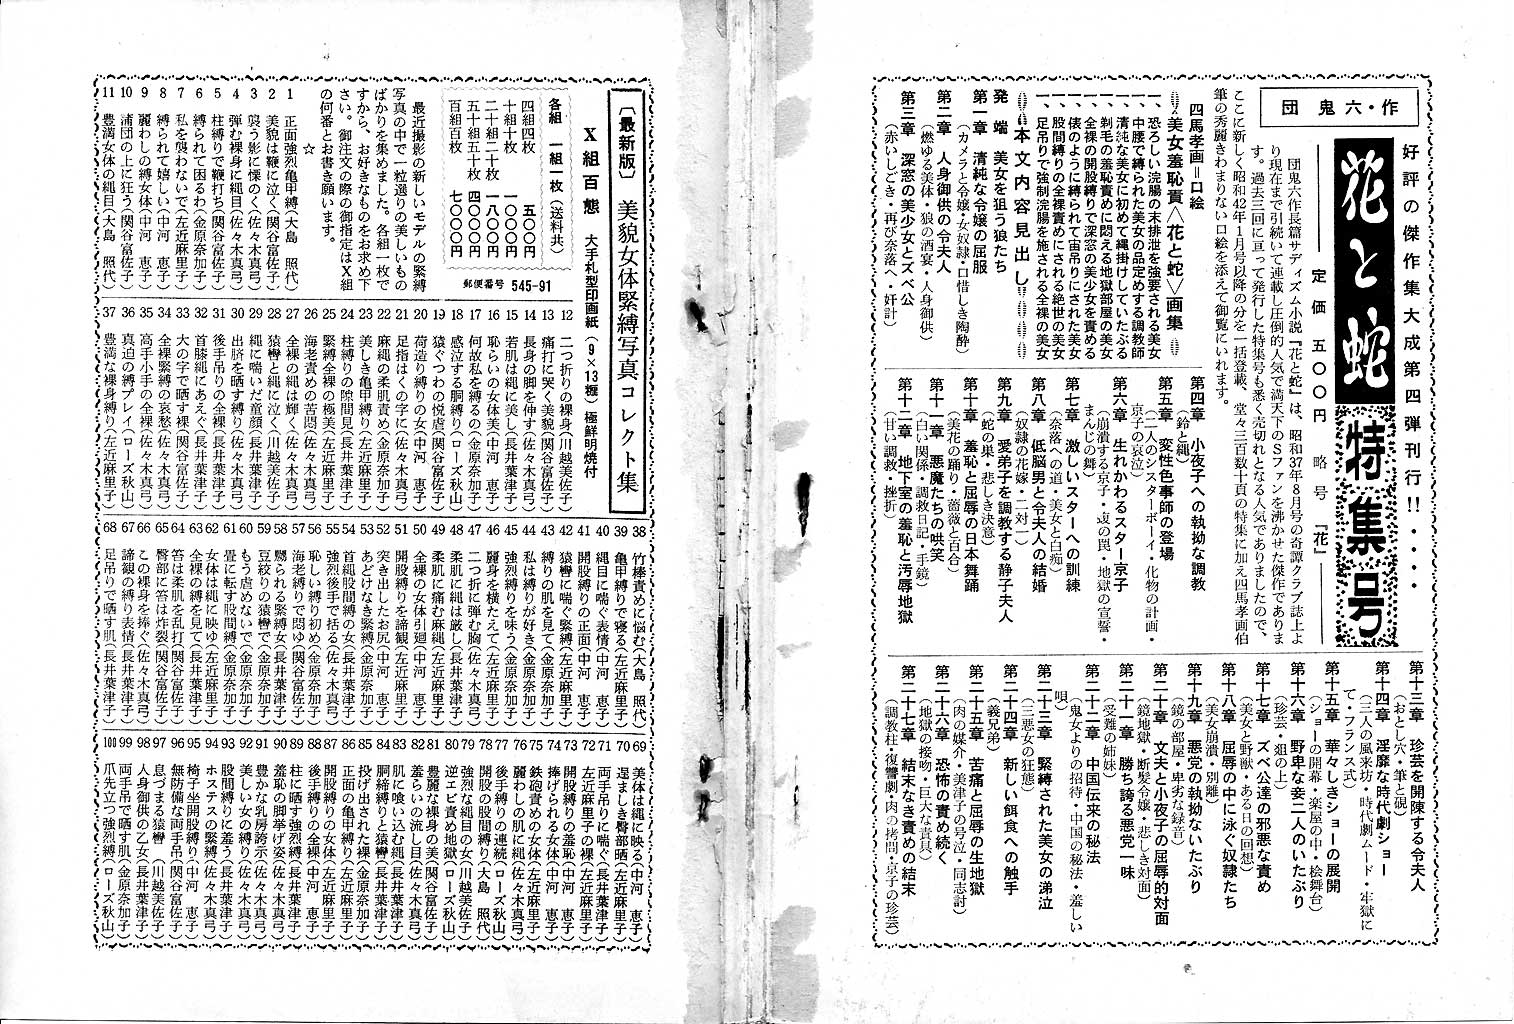 好評の傑作集大成第四弾刊行!!・・・・
花と蛇 特集号
作・六鬼団
定価 五〇〇円 略号『花』
団鬼六作長篇サディズム小説『花と蛇』は、昭和37年8月号の奇譚クラブ誌上よ
り現在まで引続いて連載し圧倒的人気で満天下のSファンを沸かせた傑作でありま
す。過去三回に亘って発行した特集号も悉く売切れとなる人気でありましたので、
ここに新しく昭和42年1月号以降の分を一括登載、堂々三百数十頁の特集に加え四馬孝画伯
筆の秀麗きわまりない口絵を添えて御覧にいれます。
四馬孝画=口絵
美女羞恥責〈花と蛇〉画集
一、恐ろしい浣腸の末排泄を強要される美女
一、中腰で縛られた美女の品定めする調教師
一、清純な美女に初めて縄掛けしていたぶる
一、剃毛の羞恥責めに悶える地獄部屋の美女
一、俵のように縛られて宙吊りにされた美女
一、股間縛りの全裸責めにされる絶世の美女
一、足吊りで強制浣腸を施される全裸の美女
本文内容見出し
発端 美女を狙う狼たち
第一章 清純な令嬢の屈服
(カメラと令嬢・女奴隷・口惜しき陶酔)
第二章 人身御供の令夫人
(燃ゆる美体・狼の酒宴・人身御供)
第三章 深窓の美少女とズベ公
(赤いしごき・再び奈落へ・奸計)
第四章 小夜子への執拗な調教
(鈴と縄)
第五章 変性色事師の登場
(二人のシスターボーイ・化物の計画・
京子の哀泣)
第六章 生れかわるスター京子
(崩潰する京子・罠・地獄の宣誓・
まんじの舞)
第七章 激しいスターへの訓練
(奈落への道・美女と白痴)
第八章 低脳男と令夫人の結婚
(奴隷の花嫁・二対一)
第九章 愛弟子を調教する静子夫人
(蛇の巣・悲しき決意)
第十章 羞恥と屈辱の日本舞踊
(美花の踊り・薔薇と百合)
第十一章 悪魔たちの哄笑
(白い関係・調教日記・手鏡)
第十二章 地下室の羞恥と汚辱地獄
(甘い調教・挫折)
第十三章 珍芸を開陳する令夫人
(おとし穴・筆と硯)
第十四章 淫靡な時代劇ショー
(三人の風来坊・時代劇ムード・牢獄に
て・フランス式)
第十五章 華々しきショーの展開
(ショーの開幕・楽屋の中・桧舞台)
第十六章 野卑な妾二人のいたぶり
(珍芸・姐の上)
第十七章 ズベ公達の邪悪な責め
(美女と野獣・ある日の回想)
第十八章 屈辱の中に泳ぐ奴隷たち
(美女崩潰・別離)
第十九章 悪党の執拗ないたぶり
(鏡の部屋・卑劣な録音)
第二十章 文夫と小夜子の屈辱的対面
(鏡地獄・断髪令嬢・悲しき対面)
第二十一章 勝ち誇る悪党一味
(受難の姉妹)
第二十二章 中国伝来の秘法
(鬼女よりの招待・中国の秘法・羞しい
唄)
第二十三章 緊縛された美女の涕泣
(三悪女の狂態)
第二十四章 新しい餌食への触手
(義兄弟)
第二十五章 苦痛と屈辱の生地獄
(肉の媒介・美津子の号泣・同志討)
第二十六章 恐怖の責め続く
(地獄の接吻・巨大な責具)
第二十七章 結末なき責めの結末
(調教柱・復讐劇・肉の拷問・京子の珍芸)
〔最新版〕 美貌女体緊縛写真コレクト集
X組百態 大手札型印画紙(9×13糎)極鮮明焼付
各組 一組一枚(送料共)
四組四枚 五〇〇円
十組十枚 一〇〇〇円
二十組二十枚 一八〇〇円
五十組五十枚 四〇〇〇円
百組百枚 七〇〇〇円
郵便番号 545-91
最近撮影の新しいモデルの緊縛
写真の中で一粒選りの美しいもの
ばかりを集めました。各組一枚で
すから、お好きなものをお求め下
さい。御注文の際の御指定はX組
の何番とお書き願います。
☆
1 正面強烈亀甲縛(大島 照代)
2 美貌は鞭に泣く(関谷富佐子)
3 襲う影に慄のく(佐々木真弓)
4 弾む裸身に縄目(佐々木真弓)
5 柱縛りで鞭打ち(関谷富佐子)
6 縛られて困るわ(金原奈加子)
7 私を襲わないで(左近麻里子)
8 縛られて嬉しい(中河 恵子)
9 麗わしの縛女体(中河 恵子)
10 蒲団の上に狂う(関谷富佐子)
11 豊満女体の縄目(大島 照代)
12 二つ折りの裸身(川越美佐子)
13 痛打に哭く美貌(関谷富佐子)
14 長身の脚を伸す(佐々木真弓)
15 若肌は縄に美し(長井葉津子)
16 恥らいの女体美(中河 恵子)
17 何故私を縛るの(金原奈加子)
18 感泣する胴縛り(ローズ秋山)
19 猿ぐつわの悦虐(関谷富佐子)
20 荷造り縛りの女(中河 恵子)
21 足指はくの字に(佐々木真弓)
22 麻縄の柔肌責め(金原奈加子)
23 美しき亀甲縛り(左近麻里子)
24 柱縛りの隙間見(長井葉津子)
25 緊縛全裸の極美(左近麻里子)
26 海老責めの苦悶(佐々木真弓)
27 全裸の縄は輝く(佐々木真弓)
28 猿轡と縄に泣く(川越美佐子)
29 縄に喘いだ童顔(長井葉津子)
30 出臍を晒す縛り(左近麻里子)
31 後手吊りの全裸(佐々木真弓)
32 首膝縄にあえぐ(長井葉津子)
33 大の字で晒す裸(関谷富佐子)
34 全裸緊縛の哀愁(佐々木真弓)
35 高手小手の全裸(佐々木真弓)
36 真迫の縛プレイ(ローズ秋山)
37 豊満な裸身縛り(左近麻里子)
38 竹棒責めに悩む(大島 照代)
39 亀甲縛りで寝る(左近麻里子)
40 縄目に喘ぐ表情(中河 恵子)
41 開股縛りの正面(中河 恵子)
42 猿轡に喘ぐ緊縛(左近麻里子)
43 縛りの肌を見て(金原奈加子)
44 私は縛りが好き(金原奈加子)
45 強烈縛りを味う(金原奈加子)
46 麗身を横たえて(左近麻里子)
47 二つ折に弾む胸(佐々木真弓)
48 柔肌に縄は厳し(長井葉津子)
49 柔肌に痛む麻縄(左近麻里子)
50 全裸の女体引廻(中河 恵子)
51 開股縛りを諦観(左近麻里子)
52 突き出したお尻(中河 恵子)
53 あどけなき緊縛(金原奈加子)
54 首縄股間縛の女(長井葉津子)
55 強烈後手で括る(佐々木真弓)
56 恥しい縛り初め(金原奈加子)
57 海老縛りで悶ゆ(関谷富佐子)
58 嬲られる緊縛女(長井葉津子)
59 豆絞りの猿轡で(金原奈加子)
60 もう虐めないで(左近麻里子)
61 畳に転す股間縛(金原奈加子)
62 女体は縄に映ゆ(左近麻里子)
63 全裸の縛を見て(長井葉津子)
64 笞は柔肌を乱打(関谷富佐子)
65 臀部に笞は炸裂(関谷富佐子)
66 この裸身を捧ぐ(佐々木真弓)
67 諦観の縛り表情(長井葉津子)
68 足吊りで晒す肌(長井葉津子)
69 美体は縄に映る(中河 恵子)
70 逞ましき臀部晒(左近麻里子)
71 両手吊りに喘ぐ(長井葉津子)
72 左近麻里子の裸(左近麻里子)
73 開股縛りの羞恥(中河 恵子)
74 捧げられる女体(中河 恵子)
75 鉄砲責めの女体(左近麻里子)
76 麗わしの肌に縄(佐々木真弓)
77 後手縛りの連続(ローズ秋山)
78 開股の股間縛り(大島 照代)
79 強烈な縄目の女(川越美佐子)
80 逆エビ責め地獄(ローズ秋山)
81 豊麗な裸身の美(関谷富佐子)
82 羞らいの流し目(中河 恵子)
83 肌に喰い込む縄(長井葉津子)
84 胴締縛りと猿轡(長井葉津子)
85 投げ出された裸(金原奈加子)
86 正面の亀甲縛り(左近麻里子)
87 開股縛りの女体(左近麻里子)
88 後手縛りの全裸(中河 恵子)
89 柱に晒す強烈縛(佐々木真弓)
90 羞恥の脚挙げ姿(佐々木真弓)
91 豊かな乳房誇示(左近麻里子)
92 美しい女の縛り(左近麻里子)
93 股間縛りに羞う(長井葉津子)
94 ホステスの緊縛(佐々木真弓)
95 椅子坐開股縛り(中河 恵子)
96 無防備な両手吊(関谷富佐子)
97 息づまる猿轡 (川越美佐子)
98 人身御供の乙女(長井葉津子)
99 両手吊で晒す肌(金原奈加子)
100 爪先立つ強烈縛(ローズ秋山)